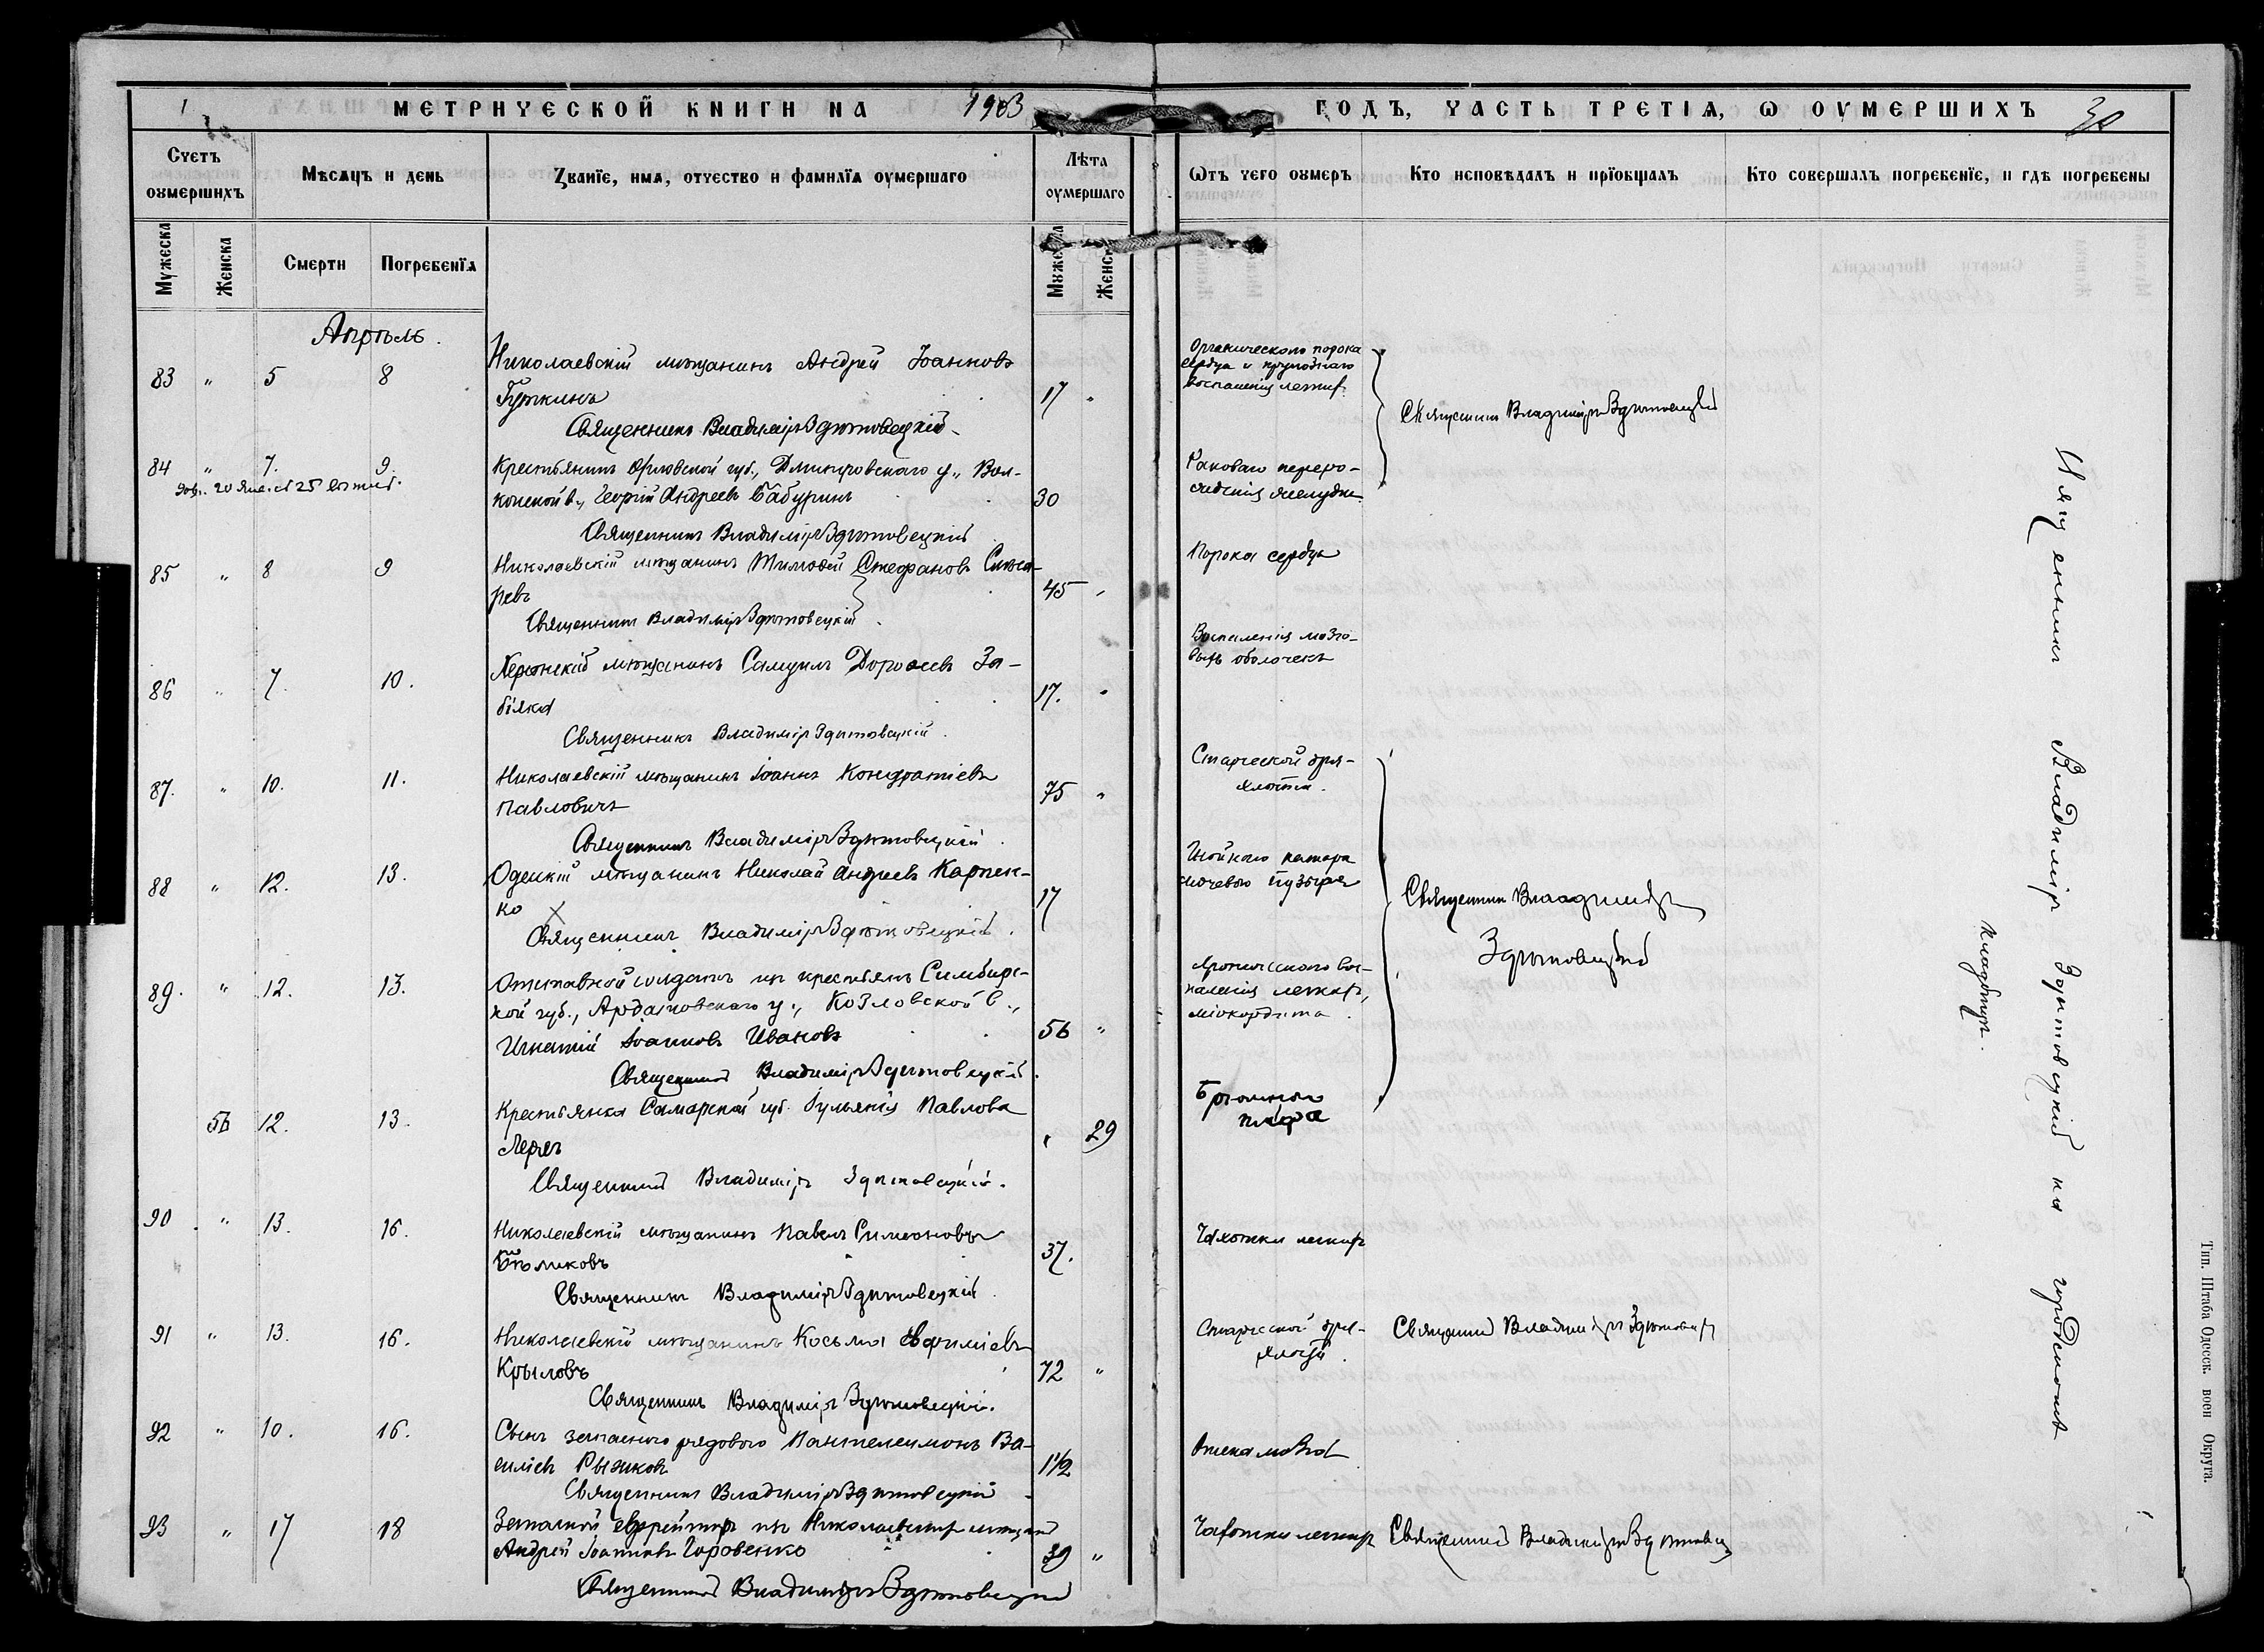 1
МЕТРИЧЕСКОЙ КНИГИ НА 1903
ГОДЪ, ЧАСТЬ ТРЕТІѦ, Ѡ ОУМЕРШИХЪ
30
Счетъ оумершихъ
Мѣсѧцъ и день
Званїе, имѧ, отчество и фамилїѧ оумершаго
Лѣта оумершаго
Ѿтъ чего оумеръ
Кто исповѣдалъ и прїобщалъ
Кто совершалъ погребенїе, и гдѣ погребены
Мужеска
Женска
Смерти
Погребенїѧ
Мужеска
Женска
Апрѣль.
Николаевскій мѣщанинъ Андрей Іоанновъ
83 " 5 8
17 "
Священникъ Владиміръ Здитовецкій
Органическаго порока
сердца и крупознаго
воспаленія легкихъ
Священникъ Владиміръ Здитовецкій
84 " 7. 9.
Крестьянинъ Орловской губ., Дмитровскаго у., Вол-
конской в., Георгій Андреевъ Бабуринъ
30
Священникъ Владиміръ Здитовецкій
Раковаго переро-
жденія желудка
85 " 8 9
Николаевскій мѣщанинъ Тимофей Стефановъ Слюса-
ревъ
45 "
Священникъ Владиміръ Здитовецкій
Порока сердца
86 " 7. 10.
Херсонскій мѣщанинъ Самуилъ Дороѳеевъ За-
біяка
17. "
Священникъ Владиміръ Здитовецкій.
Воспаленія мозго-
выхъ оболочекъ
87. " 10. 11.
Николаевскій мѣщанинъ Іоаннъ Кондратіевъ
Павловичъ
75 "
Священникъ Владиміръ Здитовецкій.
Старческой дря-
хлости.
88 " 12. 13.
Одесскій мѣщанинъ Николай Андреевъ Карпен-
ко
17
Священникъ Владиміръ Здитовецкій.
Гнойнаго катара
мочеваго пузыря
Священникъ Владиміръ
Здитовецкій
89. " 12. 13.
Отставной солдатъ изъ крестьянъ Симбирс-
кой губ., Ардатовскаго у., Козловской в.,
Игнатій Іоанновъ Ивановъ
56 "
Священникъ Владиміръ Здитовецкій.
Хроническаго вос-
паленія легкихъ,
міокордита.
56 12. 13.
Крестьянка Самарской губ. Іульянія Павлова
" 29
Священникъ Владиміръ Здитовецкій.
Брюшнаго
тифа
90. " 13. 16.
Николаевскій мѣщанинъ Павелъ Симеоновъ
Бѣликовъ
37.
Священникъ Владиміръ Здитовецкій.
Чахотки легкихъ
91 " 13. 16.
Николаевскій мѣщанинъ Косьма Евфиміевъ
Крыловъ
72 "
Священникъ Владиміръ Здитовецкій.
Старческой дря-
хлости.
Священникъ Владиміръ Здитовецкій
92 " 10. 16.
Сынъ запаснаго рядового Пантелеимонъ Ва-
силіевъ Рыжковъ
1 1/2
Священникъ Владиміръ Здитовецкій
Отека мозга
93 " 17 18
Запасной ефрейторъ изъ Николаевскихъ мѣщанъ
Андрей Іоанновъ Горовенко
39 "
Священникъ Владиміръ Здитовецкій
Чахотки легкихъ
Священникъ Владиміръ Здитовецкій
Священникъ Владиміръ Здитовецкій на городскомъ
кладбищѣ.
Тип. Штаба Одесск. воен Округа.